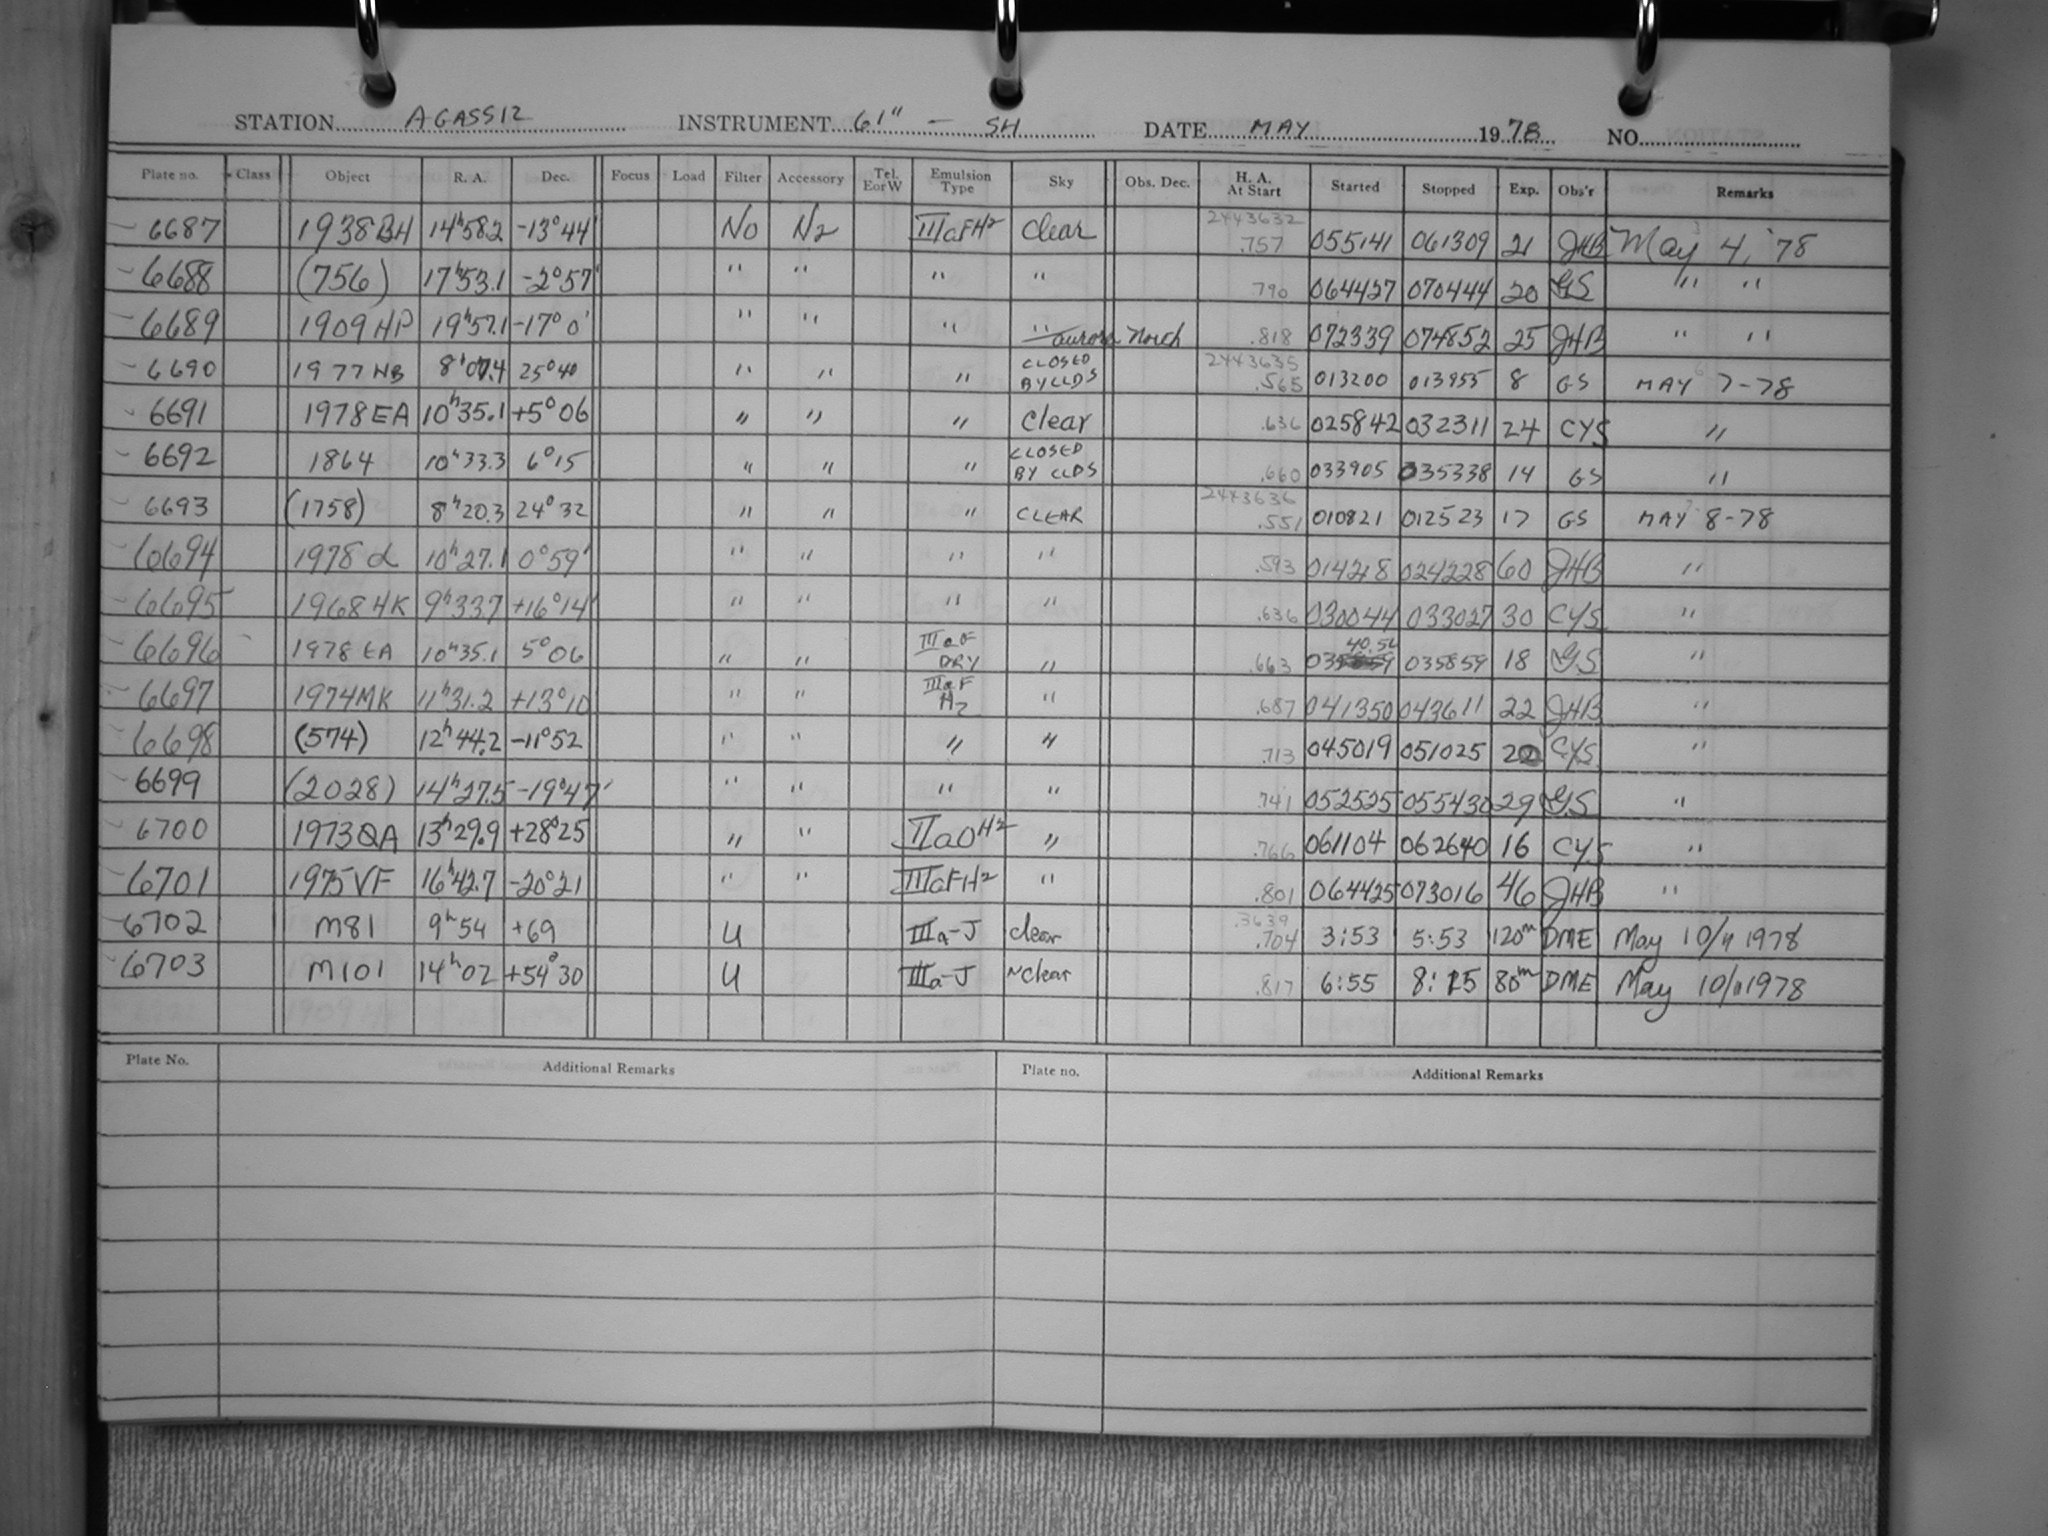 STATION AGASSIZ INSTRUMENT 61" - SH DATE MAY 1978 NO.
Plate no. Class Object R. A. Dec. Focus Load Filter Accessory Tel. E or W Emulsion Type Sky Obs. Dec. H. A. At Start Started Stopped Exp. Obs'r Remarks
6687 1938BH 14h58.2 -13°44' No N2 IIIaFH2 clear 2443632 .757 055141 061309 21 JHB May 4, '78
6688 (756) 17h53.1 -2°57' " " " " .790 064427 070444 20 GS " "
6689 1909HP 19h57.1 -17°0' " " " " aurora North .818 072339 074852 25 JHB " "
6690 1977NB 8h07.4 25°40 " " " CLOSED BY CLDS 2443635 .565 013200 013955 8 GS MAY 7-78
6691 1978EA 10h35.1 +5°06 " " " clear .636 025842 032311 24 CYS "
6692 1864 10h33.3 6°15 " " " CLOSED BY CLDS .660 033905 035338 14 GS "
6693 (1758) 8h20.3 24°32 " " " CLEAR 2443636 .551 010821 012523 17 GS MAY 8-78
6694 1978 10h27.1 0°59' " " " " .593 014218 024228 60 JHB "
6695 1968HK 9h33.7 +16°14' " " " " .636 030044 033027 30 CYS "
6696 1978 EA 10h35.1 5°06 " " IIIaF DRY " .663 03 40.56 035859 18 GS "
6697 1974MK 11h31.2 +13°10 " " IIIaF H2 " .687 041350 043611 22 JHB "
6698 (574) 12h44.2 -11°52 " " " " .713 045019 051025 20 CYS "
6699 (2028) 14h27.5 -19°47' " " " " .741 052525 055430 29 GS "
6700 1973QA 13h29.9 +28°25 " " IIaO H2 " .766 061104 062640 16 CYS "
6701 1975VF 16h42.7 -20°21 " " IIIaFH2 " .801 064425 073016 46 JHB "
6702 M81 9h54 +69 U IIIa-J clear .3639 .704 3:53 5:53 120m DME May 10/11 1978
6703 M101 14h02 +54°30 U IIIa-J ~clear .817 6:55 8:15 80m DME May 10/11 1978
Plate No. Additional Remarks Plate no. Additional Remarks